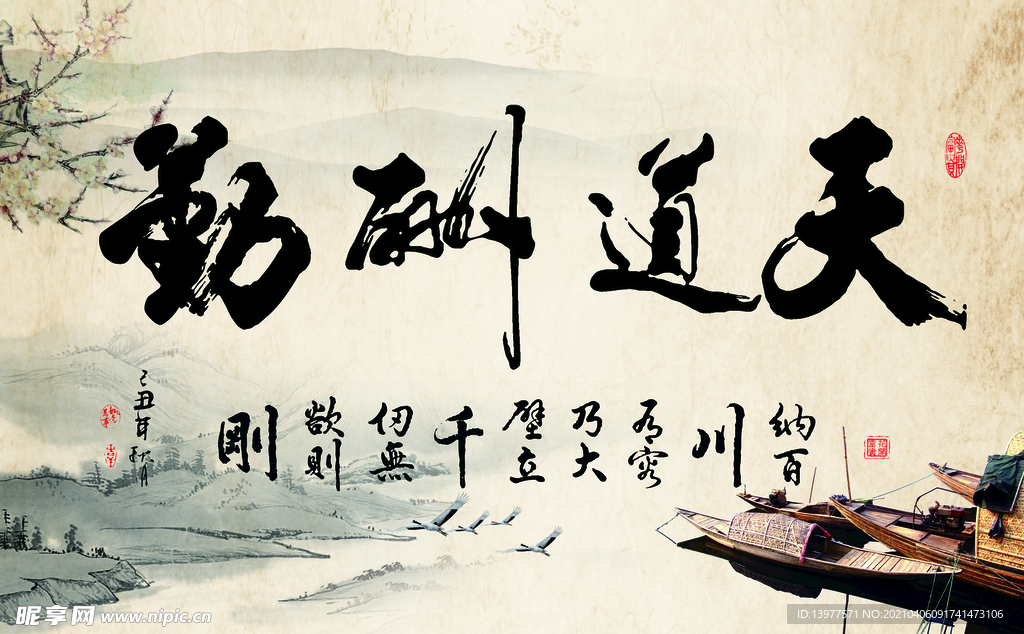 天道酬勤
納百川有容乃大壁立千仞無欲則剛
己丑年秋月
昵享网 www.nipic.cn
ID:13977571 NO:20210406091741473106